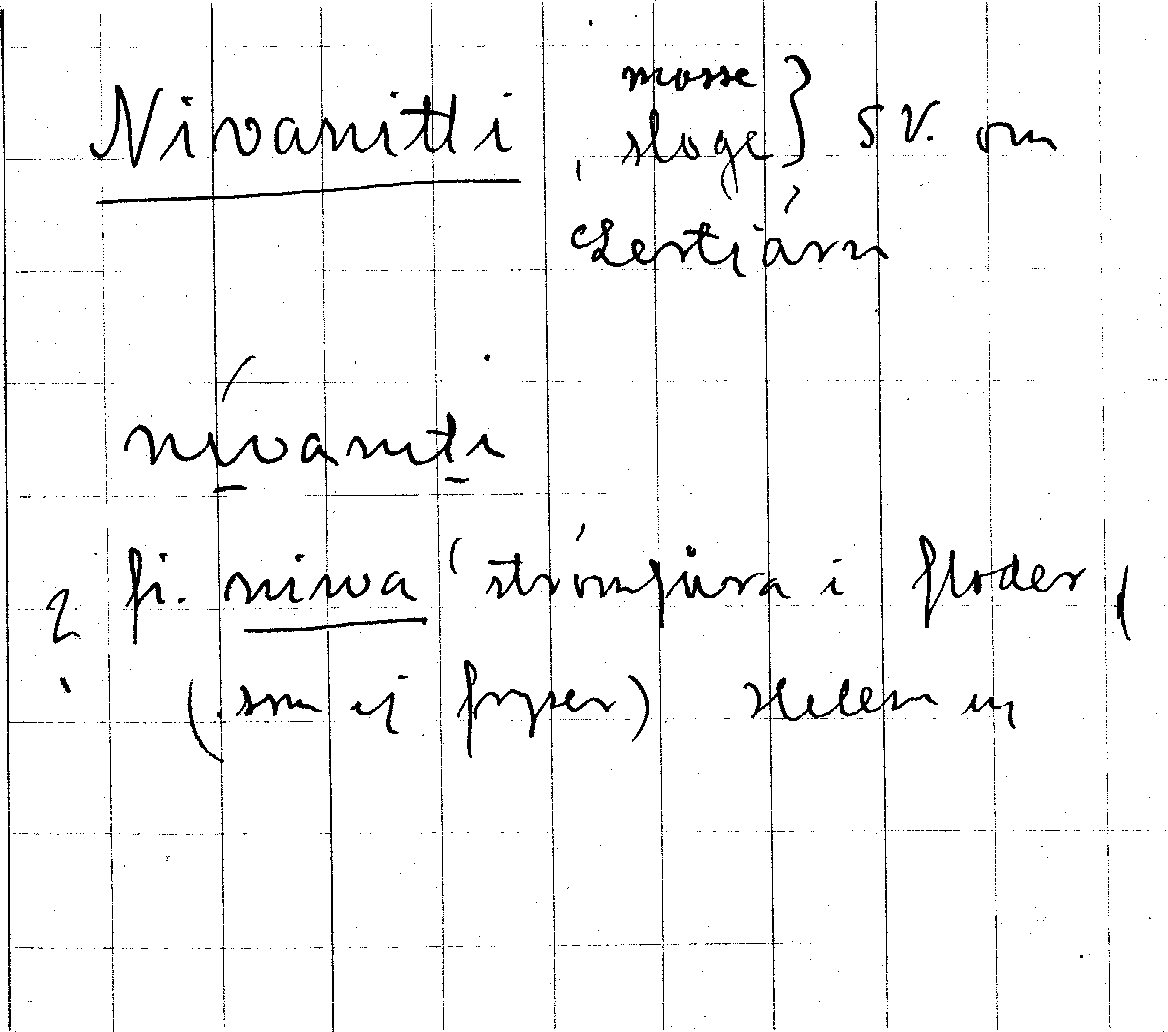 Nivanitti, mosse, sloge } SV. om
Lertjärn
nivaniti
? fi. niwa 'strömfåra i floder,
(som ej fryser)